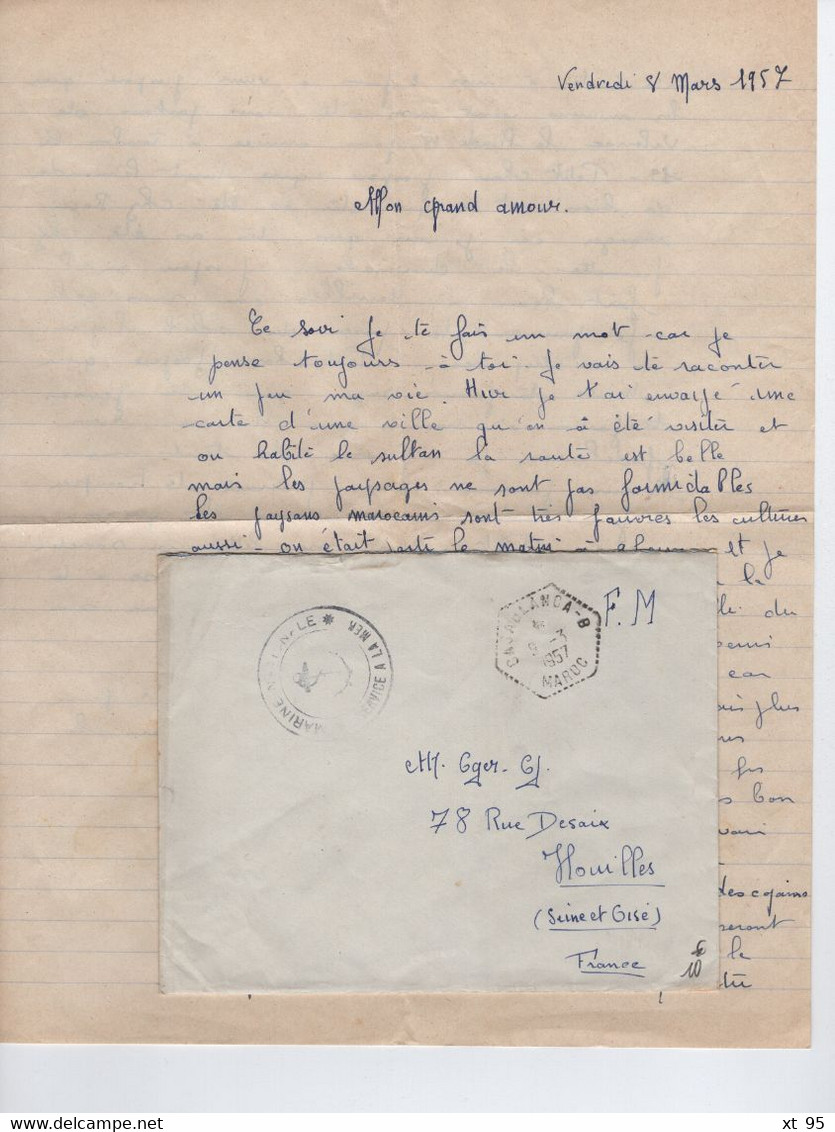 Vendredi 8 Mars 1957
Mon grand amour.
Ce soir je te fais un mot car je
pense toujours à toi. Je vais te raconter
un peu ma vie. Hier je t'ai envoyé une
carte d'une ville qu'on a été visiter et
ou habite le sultan la route est belle
mais les paysages ne sont pas formidables
Les paysans marocains sont très pauvres les cultures
aussi - on était parti le matin à et je
la
du
car
plus
bon
des copains
seront
le
MARINE NATIONALE * SERVICE A LA MER
CASABLANCA-B
9 -3
1957
MAROC
F.M
M. Eger. G.
78 Rue Desaix
Houilles
(Seine et Oise)
France
10
Delcampe.net
xt 95